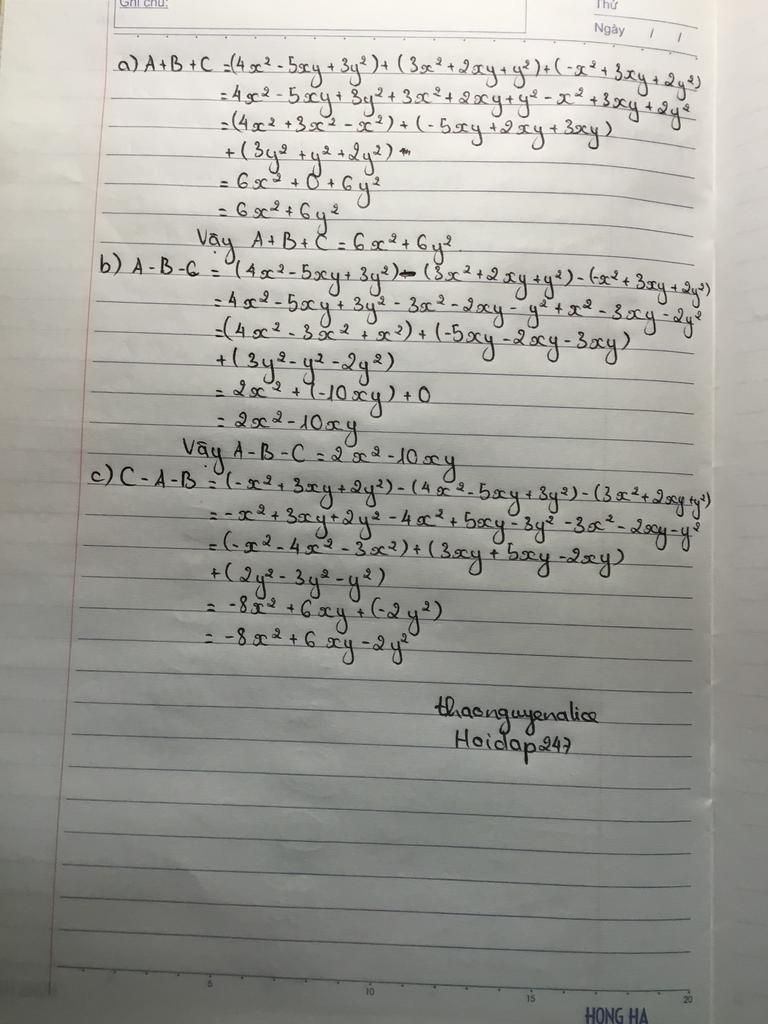 Ghi chú:
Thứ
Ngày / /
a) A+B+C =(4x² - 5xy + 3y²) + (3x² + 2xy + y²) + (-x² + 3xy + 2y²)
= 4x² - 5xy + 3y² + 3x² + 2xy + y² - x² + 3xy + 2y²
=(4x² + 3x² - x²) + (-5xy + 2xy + 3xy)
+ (3y² + y² + 2y²)
= 6x² + 0 + 6y²
= 6x² + 6y²
Vậy A+B+C = 6x² + 6y²
b) A-B-C = (4x² - 5xy + 3y²) - (3x² + 2xy + y²) - (-x² + 3xy + 2y²)
= 4x² - 5xy + 3y² - 3x² - 2xy - y² + x² - 3xy - 2y²
=(4x² - 3x² + x²) + (-5xy - 2xy - 3xy)
+ (3y² - y² - 2y²)
= 2x² + (-10xy) + 0
= 2x² - 10xy
Vậy A-B-C = 2x² - 10xy
c) C-A-B = (-x² + 3xy + 2y²) - (4x² - 5xy + 3y²) - (3x² + 2xy + y²)
= -x² + 3xy + 2y² - 4x² + 5xy - 3y² - 3x² - 2xy - y²
=(-x² - 4x² - 3x²) + (3xy + 5xy - 2xy)
+ (2y² - 3y² - y²)
= -8x² + 6xy + (-2y²)
= -8x² + 6xy - 2y²
thaonguyenalice
Hoidap247
5 10 15 20
HONG HA